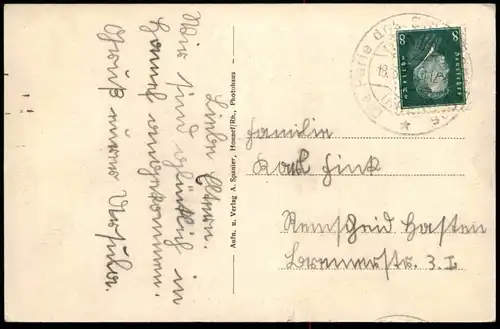 Liebe Eltern.
Wir sind glücklich in
Honnef angekommen.
Gruß eurer Ursula.
Aufn. u. Verlag A. Spanier, Honnef/Rh., Photohaus
Die Perle des
8 8
Deutsches Reich
Familie
Karl Fink
Remscheid Hasten
Bremerstr. 3. I